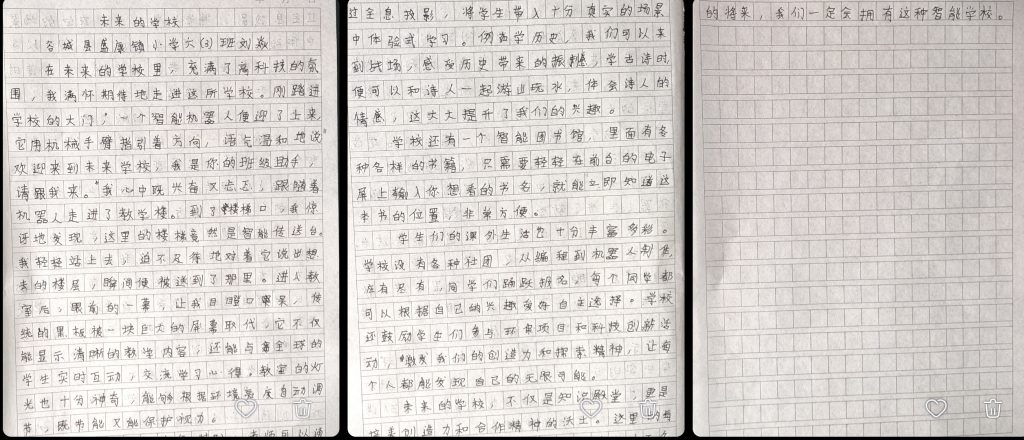 未来的学校
谷城县盛康镇小学六(3)班刘焱
在未来的学校里，充满了高科技的氛
围，我满怀期待地走进这所学校。刚踏进
学校的大门，一个智能机器人便迎了上来，
它用机械手臂指引着方向，语气温和地说"
欢迎来到未来学校，我是你的班级助手，
请跟我来。"我心中既兴奋又忐忑，跟随着
机器人走进了教学楼。到了楼梯口，我惊
讶地发现，这里的楼梯竟然是智能传送台。
我轻轻站上去，迫不及待地对着它说出想
去的楼层，瞬间便被送到了那里。进入教
室后，眼前的一幕，让我目瞪口呆，传
统的黑板被一块巨大的屏幕取代，它不仅
能显示清晰的教学内容，还能与全球的
学生实时互动，交流学习心得。教室的灯
光也十分神奇，能够根据环境亮度自动调
节，既节能又能保护视力。
过全息投影，将学生带入十分真实的场景
中体验式学习。例如学历史，我们可以来
到战场，感受历史带来的振撼，学古诗时
便可以和诗人一起游山玩水，体会诗人的
情感，这大大提升了我们的兴趣。
学校还有一个智能图书馆，里面有各
种各样的书籍，只需要轻轻在前台的电子
屏上输入你想看的书名，就能立即知道这
本书的位置，非常方便。
学生们的课外生活也十分丰富多彩。
学校设有各种社团，从编程到机器人制作
应有尽有，同学们踊跃报名，每个同学都
可以根据自己的兴趣爱好自主选择。学校
还鼓励学生们参与环保项目和科技创新活
动，激发我们的创造力和探索精神，让每
个人都能发现自己的无限可能。
未来的学校，不仅是知识殿堂，更是
培养创造力和合作精神的沃土。这里的每
的将来，我们一定会拥有这种智能学校。